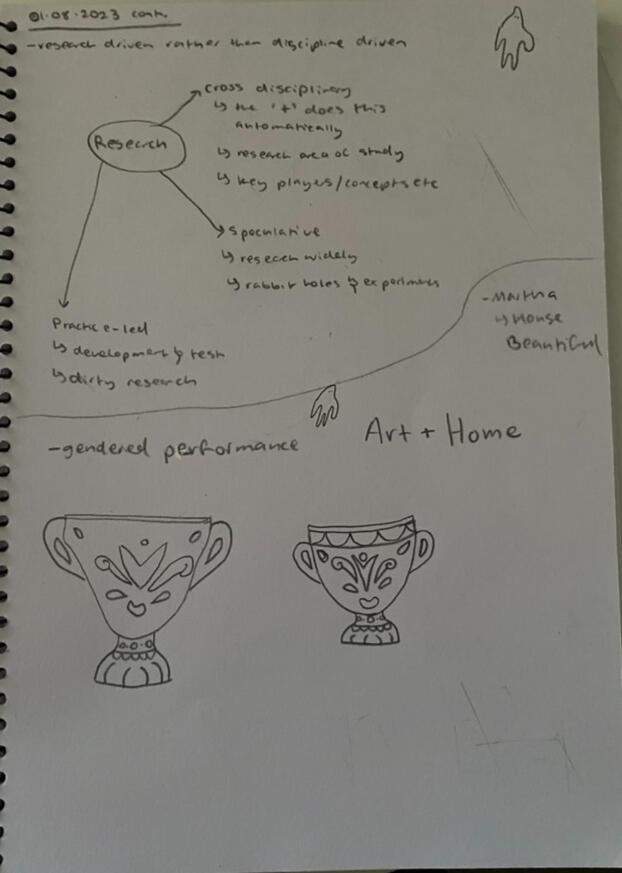 01.08.2023 cont.
-research driven rather than discipline driven
Research
cross disciplinary
↳ the '+' does this
automatically
↳ research area of study
↳ key players/concepts etc
speculative
↳ research widely
↳ rabbit holes & experiments
Practice-led
↳ development & test
↳ dirty research
-Martha
↳ House
Beautiful
-gendered performance
Art + Home